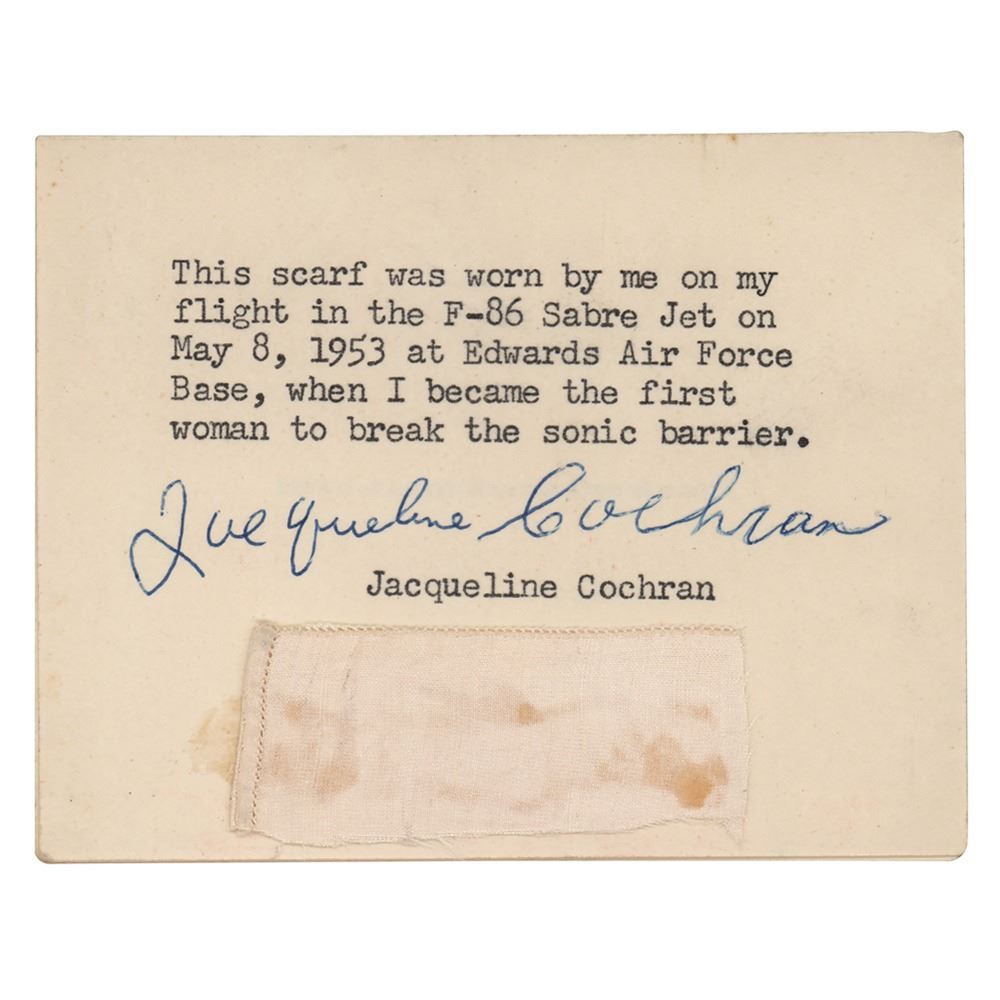 This scarf was worn by me on my
flight in the F-86 Sabre Jet on
May 8, 1953 at Edwards Air Force
Base, when I became the first
woman to break the sonic barrier.
Jacqueline Cochran
Jacqueline Cochran